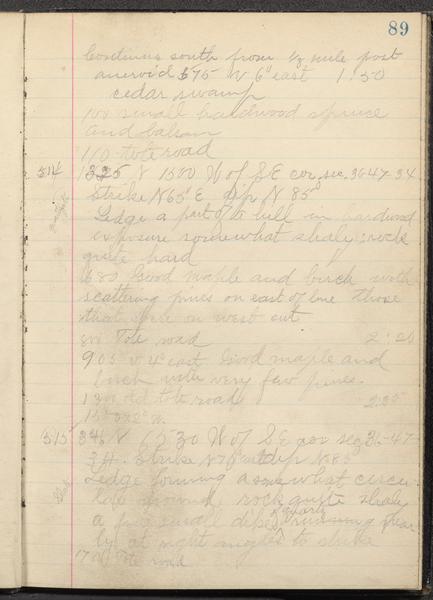 89
Continue south from 1/8 mile post
aneroid 875 V 6° east 1:50
cedar swamp
100 small hardwood spruce
and balsam
110 tote road
514 1325 N 1500 W of S E cor sec. 36 47-34
Strike N 65° E dip N 85°
Ledge a part of hill in hardwood
exposure somewhat shaly rock
quite hard
680 Good maple and birch with
scattering pines on east of line those
that were on west cut
800 Tote road 2:20
905 V 4° east Good maple and
birch with very few pines.
old tote road
515 346 N W of S E cor sec 35-47-
34. Strike N dip N 85°
Ledge forming a somewhat
ground, rock quite shaly
a few small quartz
running near
ly at right angles to strike
Tote road